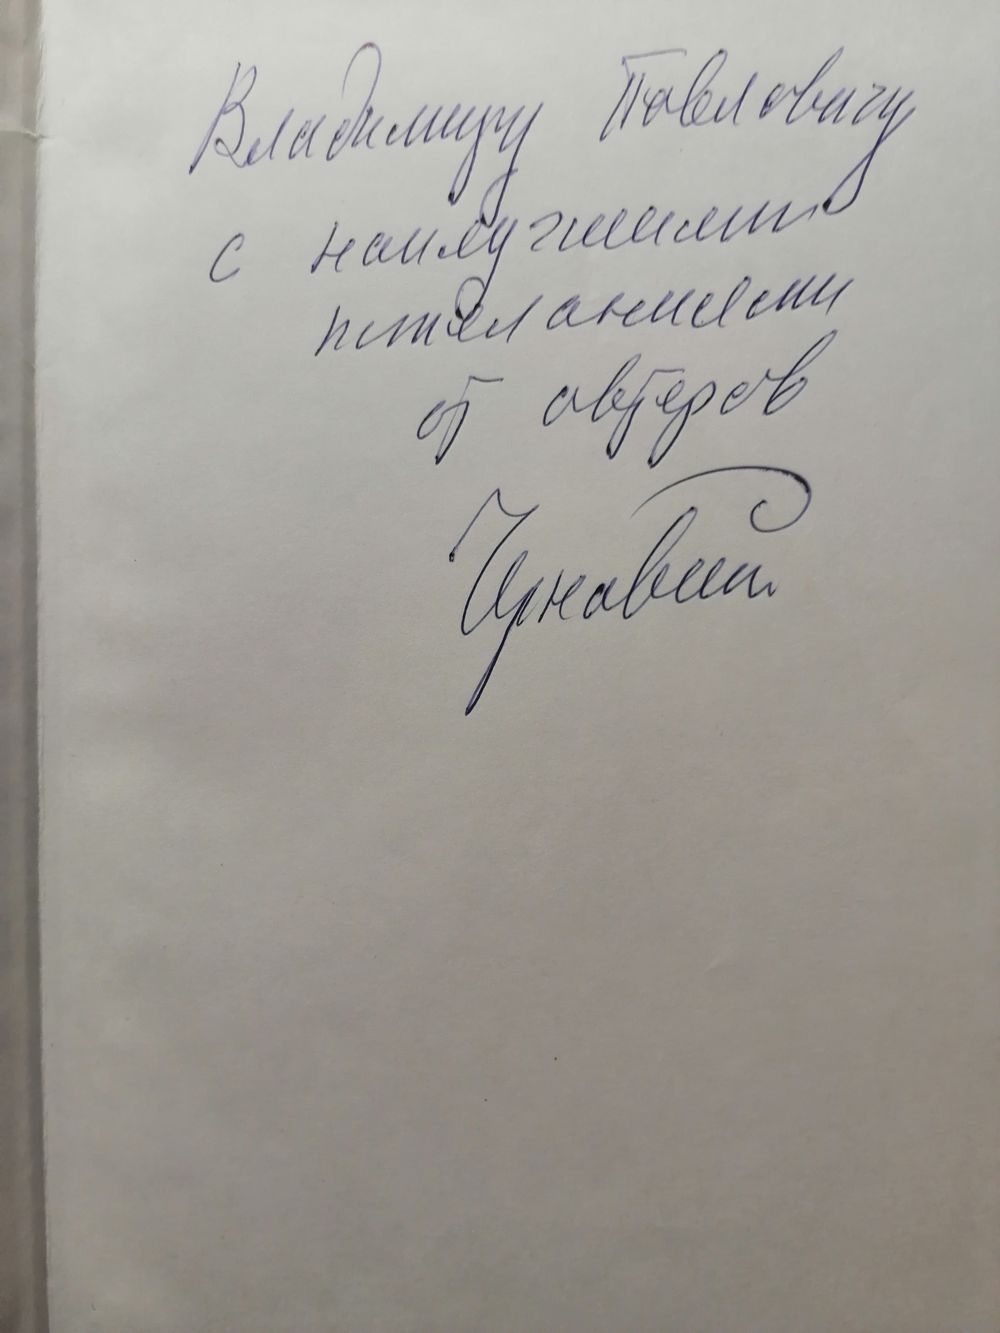 Владимиру Павловичу
с наилучшими
пожеланиями
от авторов